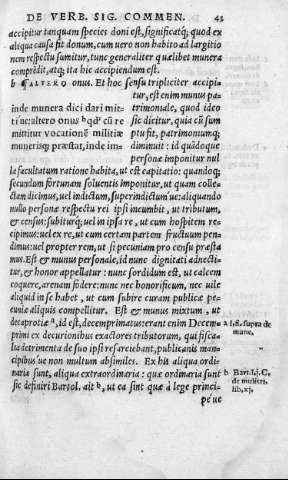 DE VERB. SIG. COMMEN. 43
accipitur tanquam species doni est, significatq; quod ex
aliqua causa fit donum, cum uero non habito ad largitio
nem respectu sumitur, tunc generaliter quælibet munera
comprēdit, atq; ita hic accipiendum est.
b ¶ALTERO onus. Et hoc sensu tripliciter accipi-
tur, est enim munus pa-
inde munera dici dari mit-
trimoniale, quod ideo
ti ue: altero onus
sic dicitur, quia cū sum
mittitur vocationē militiæ
ptu fit, patrimoniumq;
munerisq; præstat, inde im-
diminuit: id quādoque
personæ imponitur nul
la facultatum ratione habita, ut est capitatio: quandoq;
secundum fortunam soluentis imponitur, ut quam colle-
ctam dicimus, uel indictum, superindictum ue: aliquando
nullo personæ respectu rei ipsi incumbit, ut tributum,
& census: subitur q; uel in ipsa re, ut cum hospitem re-
cipimus: uel ex re, ut cum certam partem fructuum pen-
dimus: uel propter rem, ut si pecuniam pro censu præsta
mus. Est & munus personale, id nunc dignitati adnecti-
tur, & honor appellatur: nunc sordidum est, ut calcem
coquere, arenam fodere: nunc nec honorificum, nec uile
aliquid in se habet, ut cum subire curam publicæ pe-
cuniæ aliquis compellitur. Est & munus mixtum, ut
decaprotiæ a, id est, decemprimatus: erant enim Decem-
primi ex decurionibus exactores tributorum, qui fisca-
lia detrimenta de suo ipsi resarciebant, publicanis man-
cipibus ue non multum absimiles. Ex his aliqua ordi-
naria sunt, aliqua extraordinaria: quæ ordinaria sunt
sic definiri Bartol. ait b, ut ea sint quæ à lege princi-
pe ue
a l. 8. supra de
mune.
b Bart. l. j. C.
de mulieri.
lib. xj.